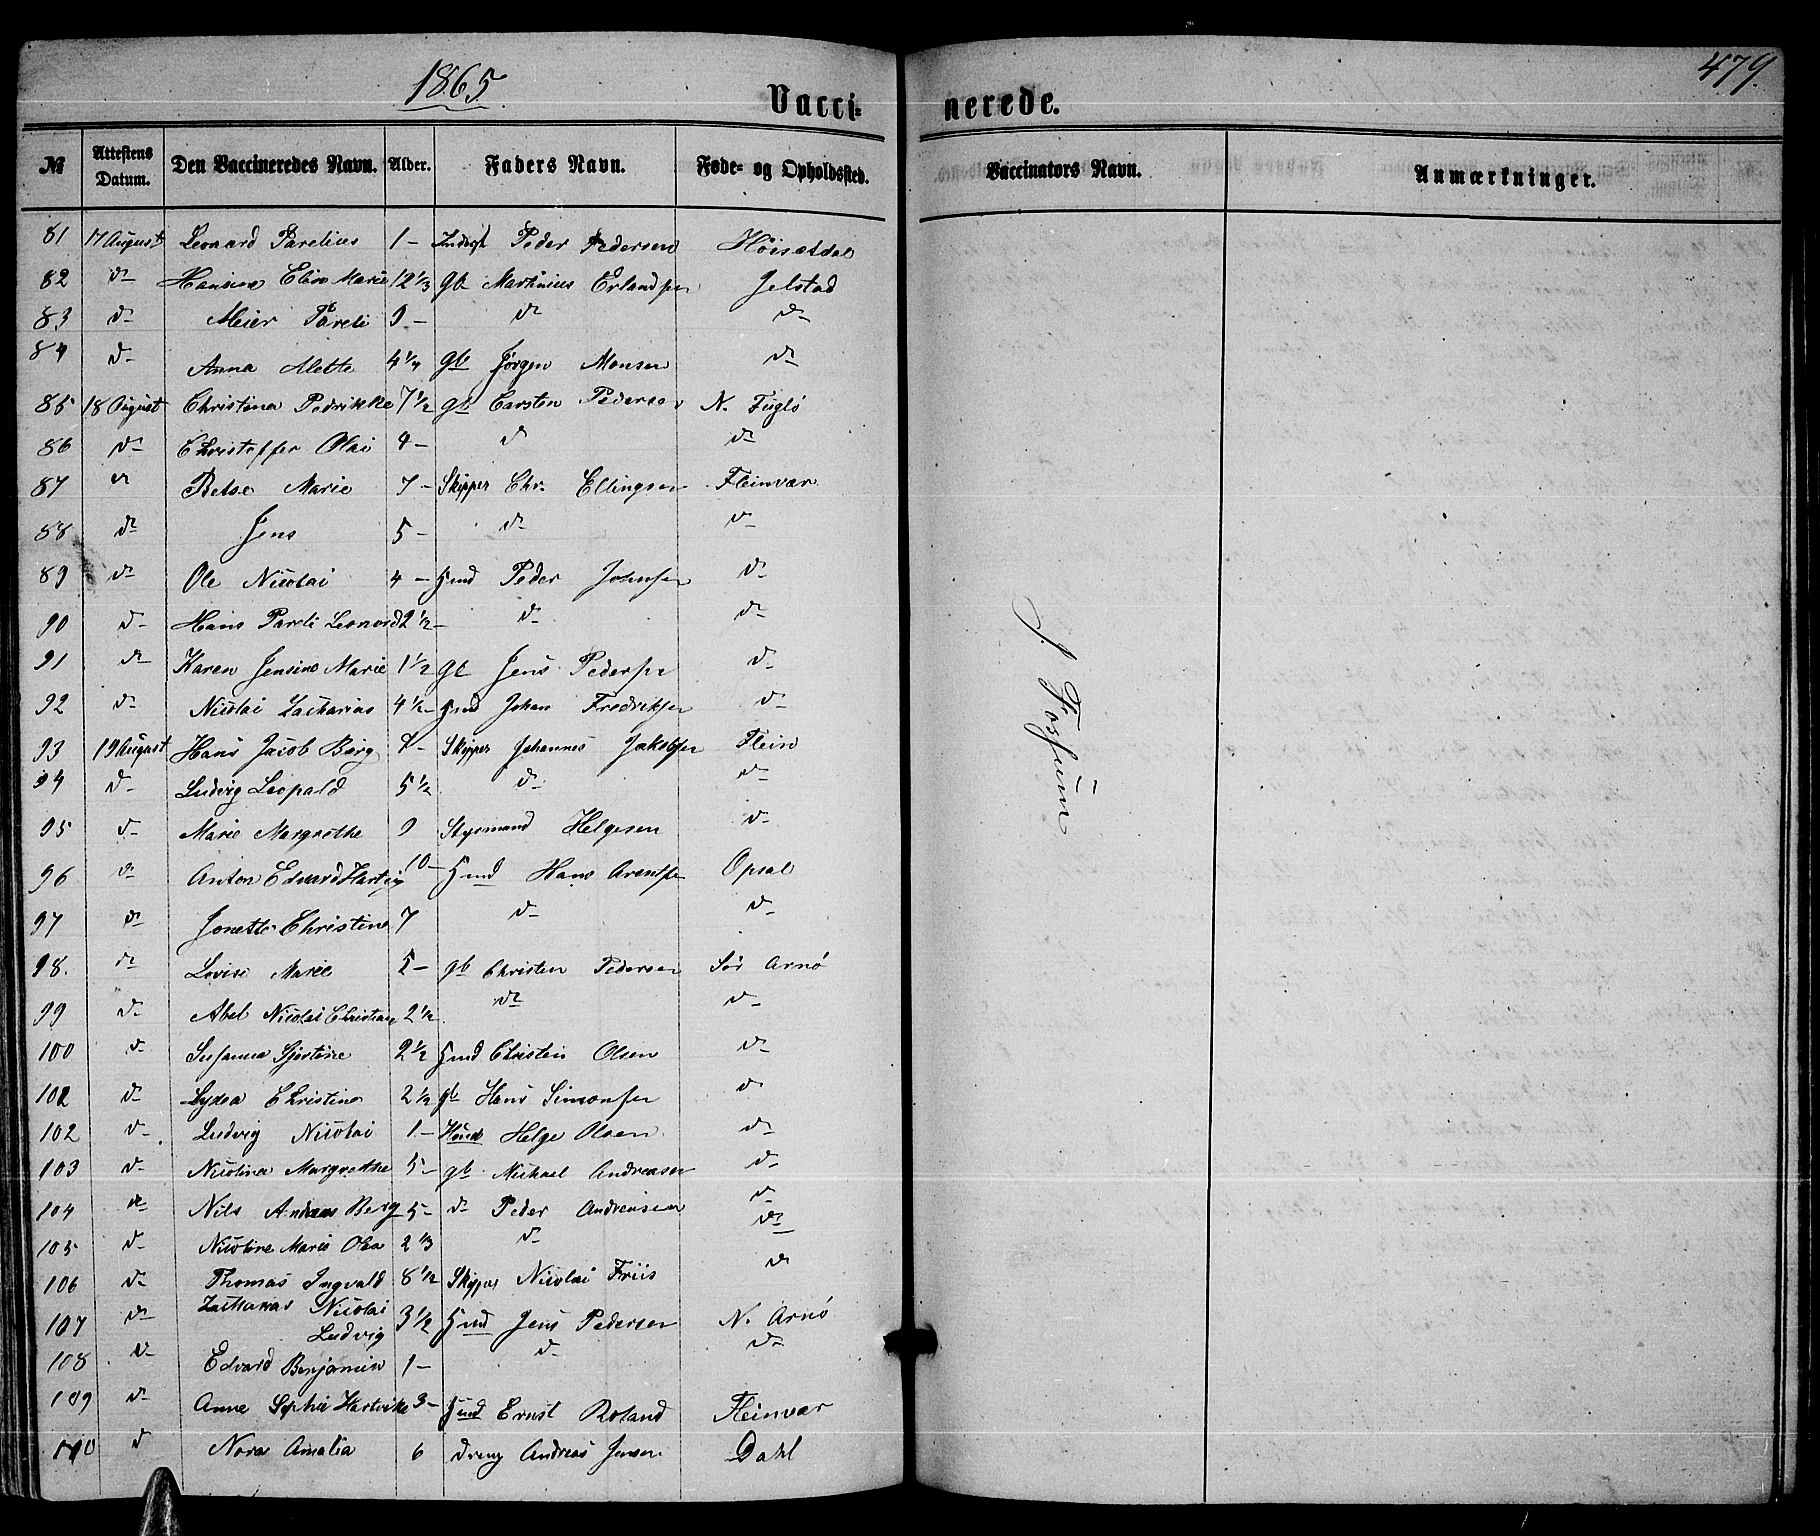 1865
479.
Vacci- nerede.
№ Attestens Datum. Den Vaccineredes Navn. Alder. Faders Navn. Føde- og Opholdssted. Vaccinators Navn. Anmærkninger.
81 17 August Leonard Parelius 1 - Inderst Peder Pedersen Høisætdal
82 d- Hansine Elise Marie 12 1/3 gb Marthinius Erlandsen Jelstad
83 d- Meier Pareli 9 - d- d-
84 d- Anna Alette 4 1/4 gb Jørgen Monsen d-
85 18 August Christina Pedrikke 7 1/2 gb Carsten Pedersen N. Fuglø
86 d- Christoffer Olai 4 - d d-
87 d- Betse Marie 7 - Skipper Chr. Ellingsen Fleinvær
88 d- Jens 5 - d- d-
89 d- Ole Nicolai 4 - Hmd Peder Johnsen d-
90 d- Hans Pareli Leonard 2 1/2 - d- d-
91 d- Karen Jensine Marie 1 1/2 gb Jens Pedersen d-
92 d- Nicolai Zacharias 4 1/2 - Hmd Johan Fredriksen d-
93 19 August Hans Jacob Berg 7 - Skipper Johannes Jakobsen Flein
94 d- Ludvig Leopald 5 1/2 d- d-
95 d- Marie Margrethe 9 Styrmand Helgesen d-
96 d- Anton Edvard Hartvig 10 - Hmd Hans Arentsen Opsal
97 d- Jonette Christine 7 d- d-
98. d- Lovise Marie 5 - gb Christen Pedersen Sør Arnø
99 d- Abel Nicolai Christian 2 1/2 d- d-
100 d- Susanna Sjertine 2 1/2 Hmd Christen Olsen d-
102 d- Lydea Christine 2 1/2 gb Hans Simonsen d
102 d- Ludvig Nicolai 1 - Huusm Helge Olsen d-
103 d- Nicolina Margrethe 5 - gb Michael Andreasen d-
104 d- Nils Andreas Berg 5 - d- Peder Andreasen d-
105 d- Nicoline Marie Olea 2 1/3 d- d-
106 d- Thomas Ingvald 8 1/2 Skipper Nicolai Friis d-
107 d- Zacharias Nicolai
Ludvig 3 1/2 Hmd Jens Pedersen N. Arnø
108 d- Edvard Benjamin 1 - d- d-
109 d- Anne Sophie Hartvike 3 - Hmd Ernst Roland Fleinvær
110 d Nora Amalia 6 dreng Andreas Jensen Dahl
J. Fossum